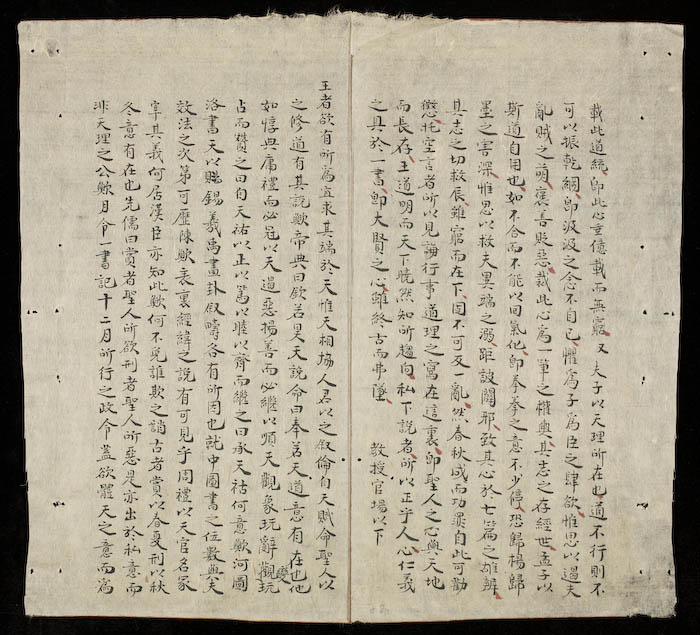 載此道統卽此心重億載而無窮又夫子以天理所在也道不行則不
可以振乾綱卽汲汲之念不自已懼爲子爲臣之肆欲惟思以遏夫
亂賊之萌褒善貶惡裁此心爲一筆之權與其志之存經世孟子以
斯道自用也如不合而不能以回氣化卽拳拳之意不少停恐歸楊歸
墨之害深惟思以救夫異端之溺距詖闢邪致其心於七篇之雄辨
其志之切救辰雖窮而在下固不可反一亂然春秋成而功罪自此可勸
懲托空言者所以見誨行事道理之寓在這裏卽聖人之心與天地
而長存王道明而天下曉然知所趨向私下說者所以正乎人心仁義
之具於一書卽大賢之心雖終古而弗墜 教授官場以下
王者欲有所爲宜求其端於天惟天相協人君以之叙倫自天賦命聖人以
之修道有其說歟帝典曰欽若昊天說命曰奉若天道意有在也他
如惇典庸禮而必冠以天遏惡揚善而必繼以順天觀象玩辭觀變玩
占而贊之曰自天祐以正以篤以睦以齊而繼之曰承天祜何意歟河圖
洛書天以賜錫羲禹畫卦叙疇各有所因也就中圖書之位數與夫
效法之次第可歷陳歟表裏經緯之說有可見乎周禮以天官名冢
宰其義何居漢臣亦知此歟何不免誰欺之誚古者賞以春夏刑以秋
冬意有在也先儒曰賞者聖人所欲刑者聖人所惡是亦出於私意而
非天理之公歟月令一書記十二月所行之政令蓋欲體天之意而爲